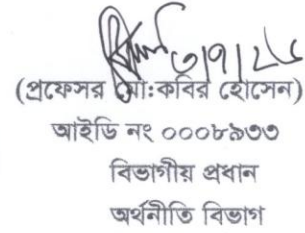 ৩|৭|২৬
(প্রফেসর মো:কবির হোসেন)
আইডি নং ০০০৮৯৩৩
বিভাগীয় প্রধান
অর্থনীতি বিভাগ